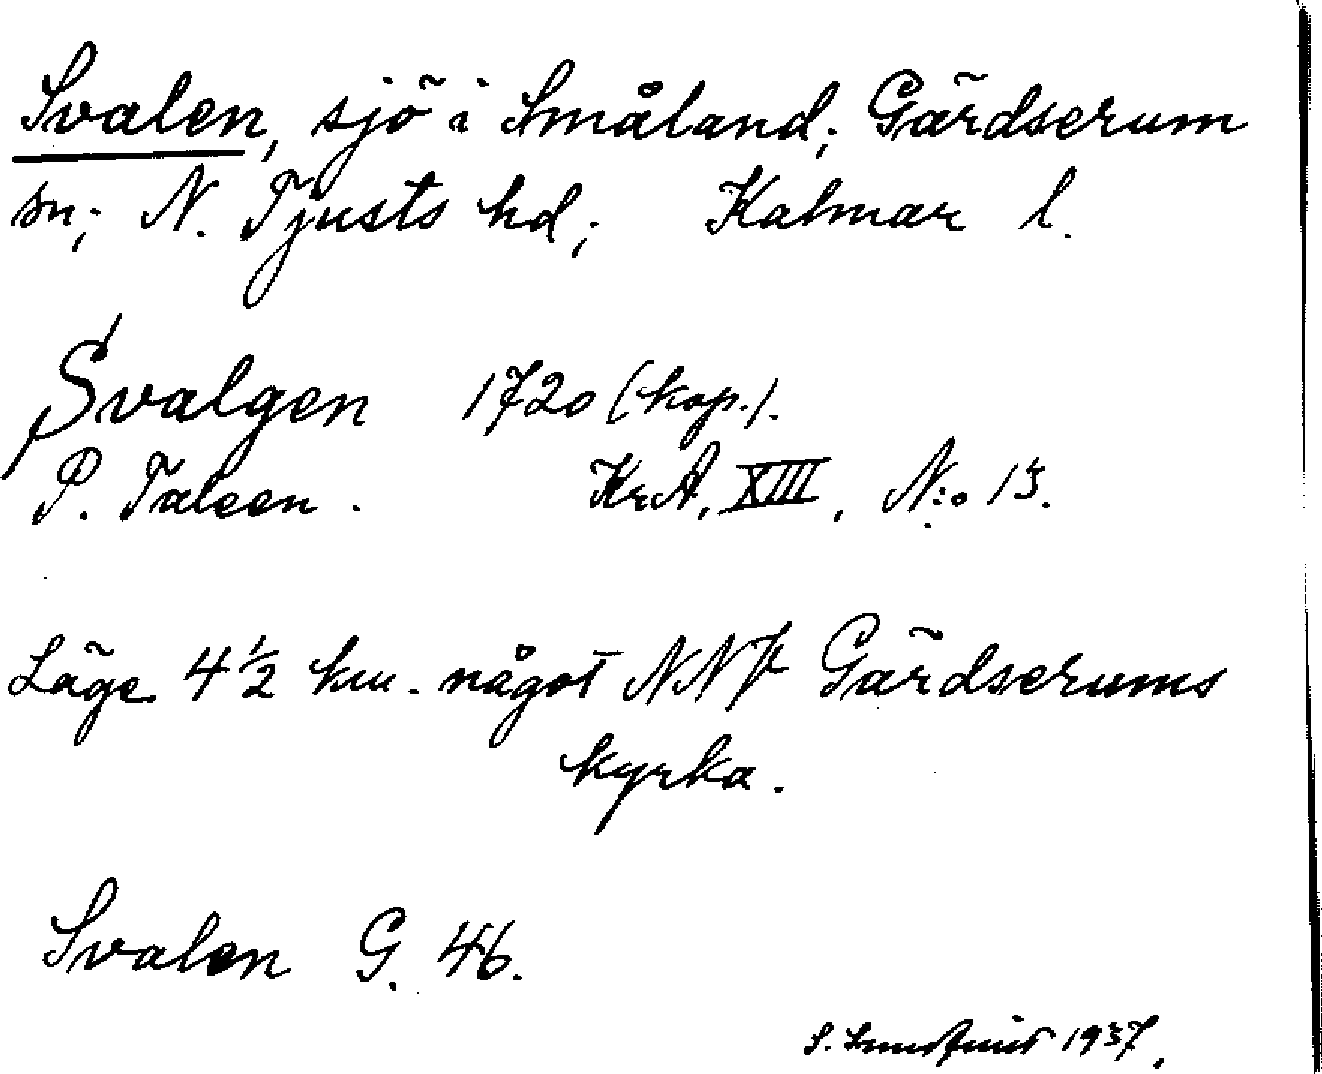 Svalen, sjö i Småland; Gärdserum
sn; N. Tjusts hd; Kalmar l.
Svalgen 1720 (kop.).
P. Taleen. KrA, XIII, N:o 13.
Läge 4½ km. något NNV Gärdserums
kyrka.
Svalen G. 46.
S. 1937.